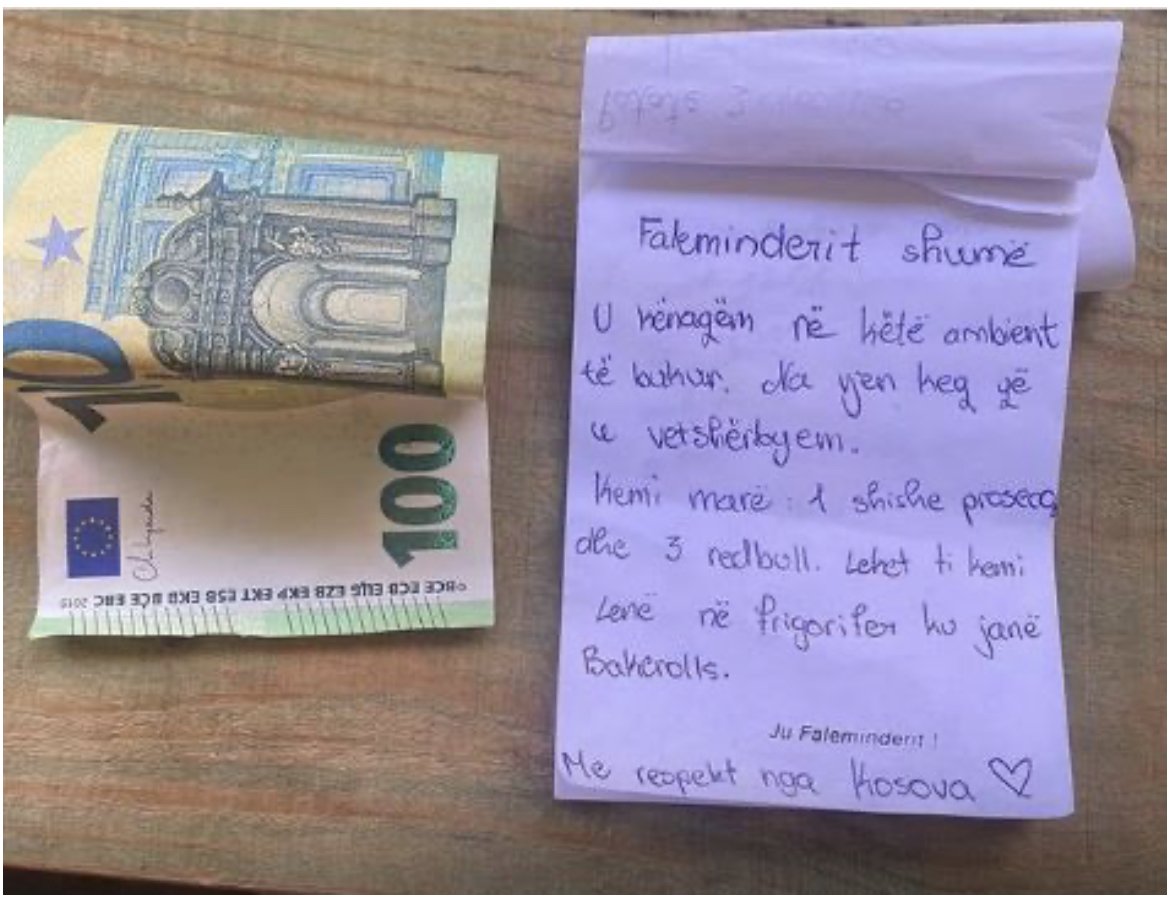 Faleminderit shumë
U kënaqëm në këtë ambient
të bukur. Na vjen keq që
u vetshërbyem.
Kemi marë: 1 shishe prosecco
dhe 3 redbull. Lekët ti kemi
Lenë në frigorifer ku janë
Bakerolls.
Ju Faleminderit !
Me respekt nga Kosova ♡
10
100
©BCE ECB ЕЦБ EZB EKP EKT ESB EKB BĊE EBC 2019